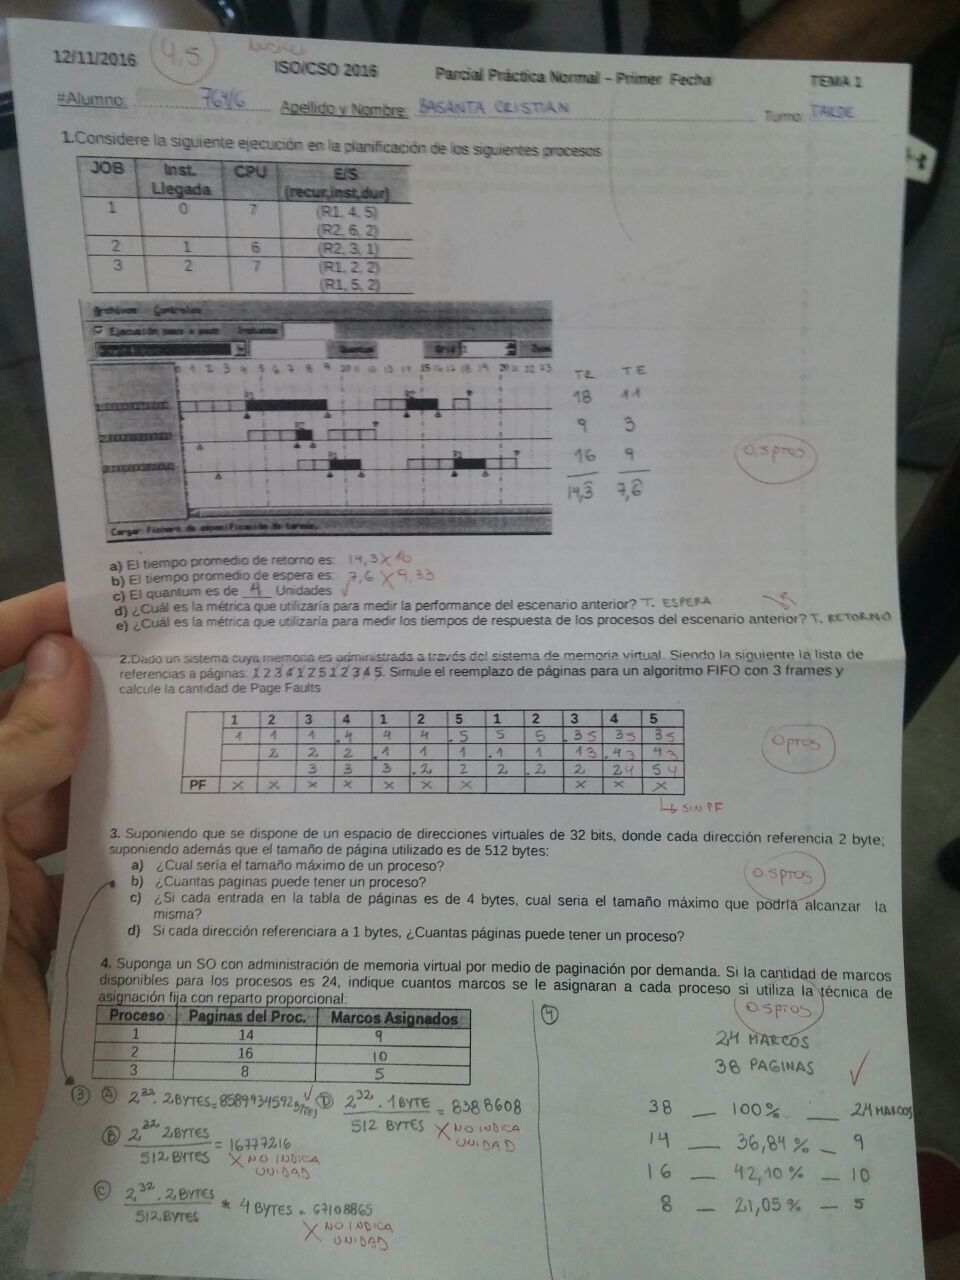 12/11/2016
4,5
ISO/CSO 2016
Parcial Práctica Normal – Primer Fecha
TEMA 1
#Alumno: 764/6 Apellido y Nombre: BASANTA CRISTIAN Turno: TARDE
1.Considere la siguiente ejecución en la planificación de los siguientes procesos
JOB Inst. Llegada CPU E/S (recur,inst,dur)
1 0 7 (R1, 4, 5)
(R2, 6, 2)
2 1 6 (R2, 3, 1)
3 2 7 (R1, 2, 2)
(R1, 5, 2)
Archivos Controles
Ejecución paso a paso Instante
Quantum Grid Zoom
0 1 2 3 4 5 6 7 8 9 10 11 12 13 14 15 16 17 18 19 20 21 22 23
TR TE
18 11
9 3
16 9
14,3 7,6
0,5 ptos
Cargar fichero de especificación de tareas.
a) El tiempo promedio de retorno es: 14,3 X 16
b) El tiempo promedio de espera es: 7,6 X 9,33
c) El quantum es de 4 Unidades
d) ¿Cuál es la métrica que utilizaría para medir la performance del escenario anterior? T. ESPERA
e) ¿Cuál es la métrica que utilizaría para medir los tiempos de respuesta de los procesos del escenario anterior? T. RETORNO
2.Dado un sistema cuya memoria es administrada a través del sistema de memoria virtual. Siendo la siguiente la lista de
referencias a páginas: 1 2 3 4 1 2 5 1 2 3 4 5. Simule el reemplazo de páginas para un algoritmo FIFO con 3 frames y
calcule la cantidad de Page Faults
1 2 3 4 1 2 5 1 2 3 4 5
1 1 1 .4 4 4 .5 5 5 .3 5 3 5 3 5
2 2 2 .1 1 1 .1 1 1 3 .4 3 4 3
3 3 3 .2 2 2 .2 2 2 4 5 4
PF X X X X X X X X X X
↳ SIN PF
0 ptos
3. Suponiendo que se dispone de un espacio de direcciones virtuales de 32 bits, donde cada dirección referencia 2 byte;
suponiendo además que el tamaño de página utilizado es de 512 bytes:
a) ¿Cual sería el tamaño máximo de un proceso?
b) ¿Cuantas paginas puede tener un proceso?
c) ¿Si cada entrada en la tabla de páginas es de 4 bytes, cual seria el tamaño máximo que podría alcanzar la
misma?
d) Si cada dirección referenciara a 1 bytes, ¿Cuantas páginas puede tener un proceso?
0.5 ptos
4. Suponga un SO con administración de memoria virtual por medio de paginación por demanda. Si la cantidad de marcos
disponibles para los procesos es 24, indique cuantos marcos se le asignaran a cada proceso si utiliza la técnica de
asignación fija con reparto proporcional:
Proceso Paginas del Proc. Marcos Asignados
1 14 9
2 16 10
3 8 5
3 A 2^32 . 2 BYTES = 8589934592 BYTES
B 2^32 2 BYTES / 512 BYTES = 16777216
X NO INDICA UNIDAD
C 2^32 . 2 BYTES / 512 BYTES * 4 BYTES = 67108865
X NO INDICA UNIDAD
D 2^32 . 1 BYTE / 512 BYTES = 8388608
X NO INDICA UNIDAD
4
0.5 ptos
24 MARCOS
38 PAGINAS
38 — 100% — 24 MARCOS
14 — 36,84 % — 9
16 — 42,10 % — 10
8 — 21,05 % — 5